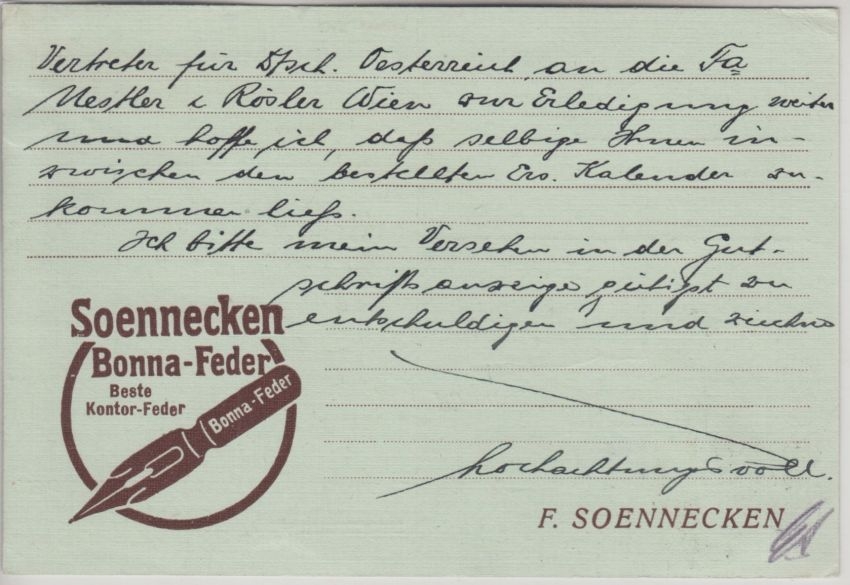 Vertreter für Dtsch. Oesterreich, an die Fa
Nestler & Rösler Wien zur Erledigung weiter
und hoffe ich, daß selbige Ihnen in-
zwischen den bestellten Ers. Kalender zu-
kommen ließ.
Ich bitte mein Versehen in der Gut-
schriftsanzeige gütigst zu
entschuldigen und zeichne
hochachtungsvoll.
Soennecken
Bonna-Feder
Beste
Kontor-Feder
Bonna-Feder
F. SOENNECKEN